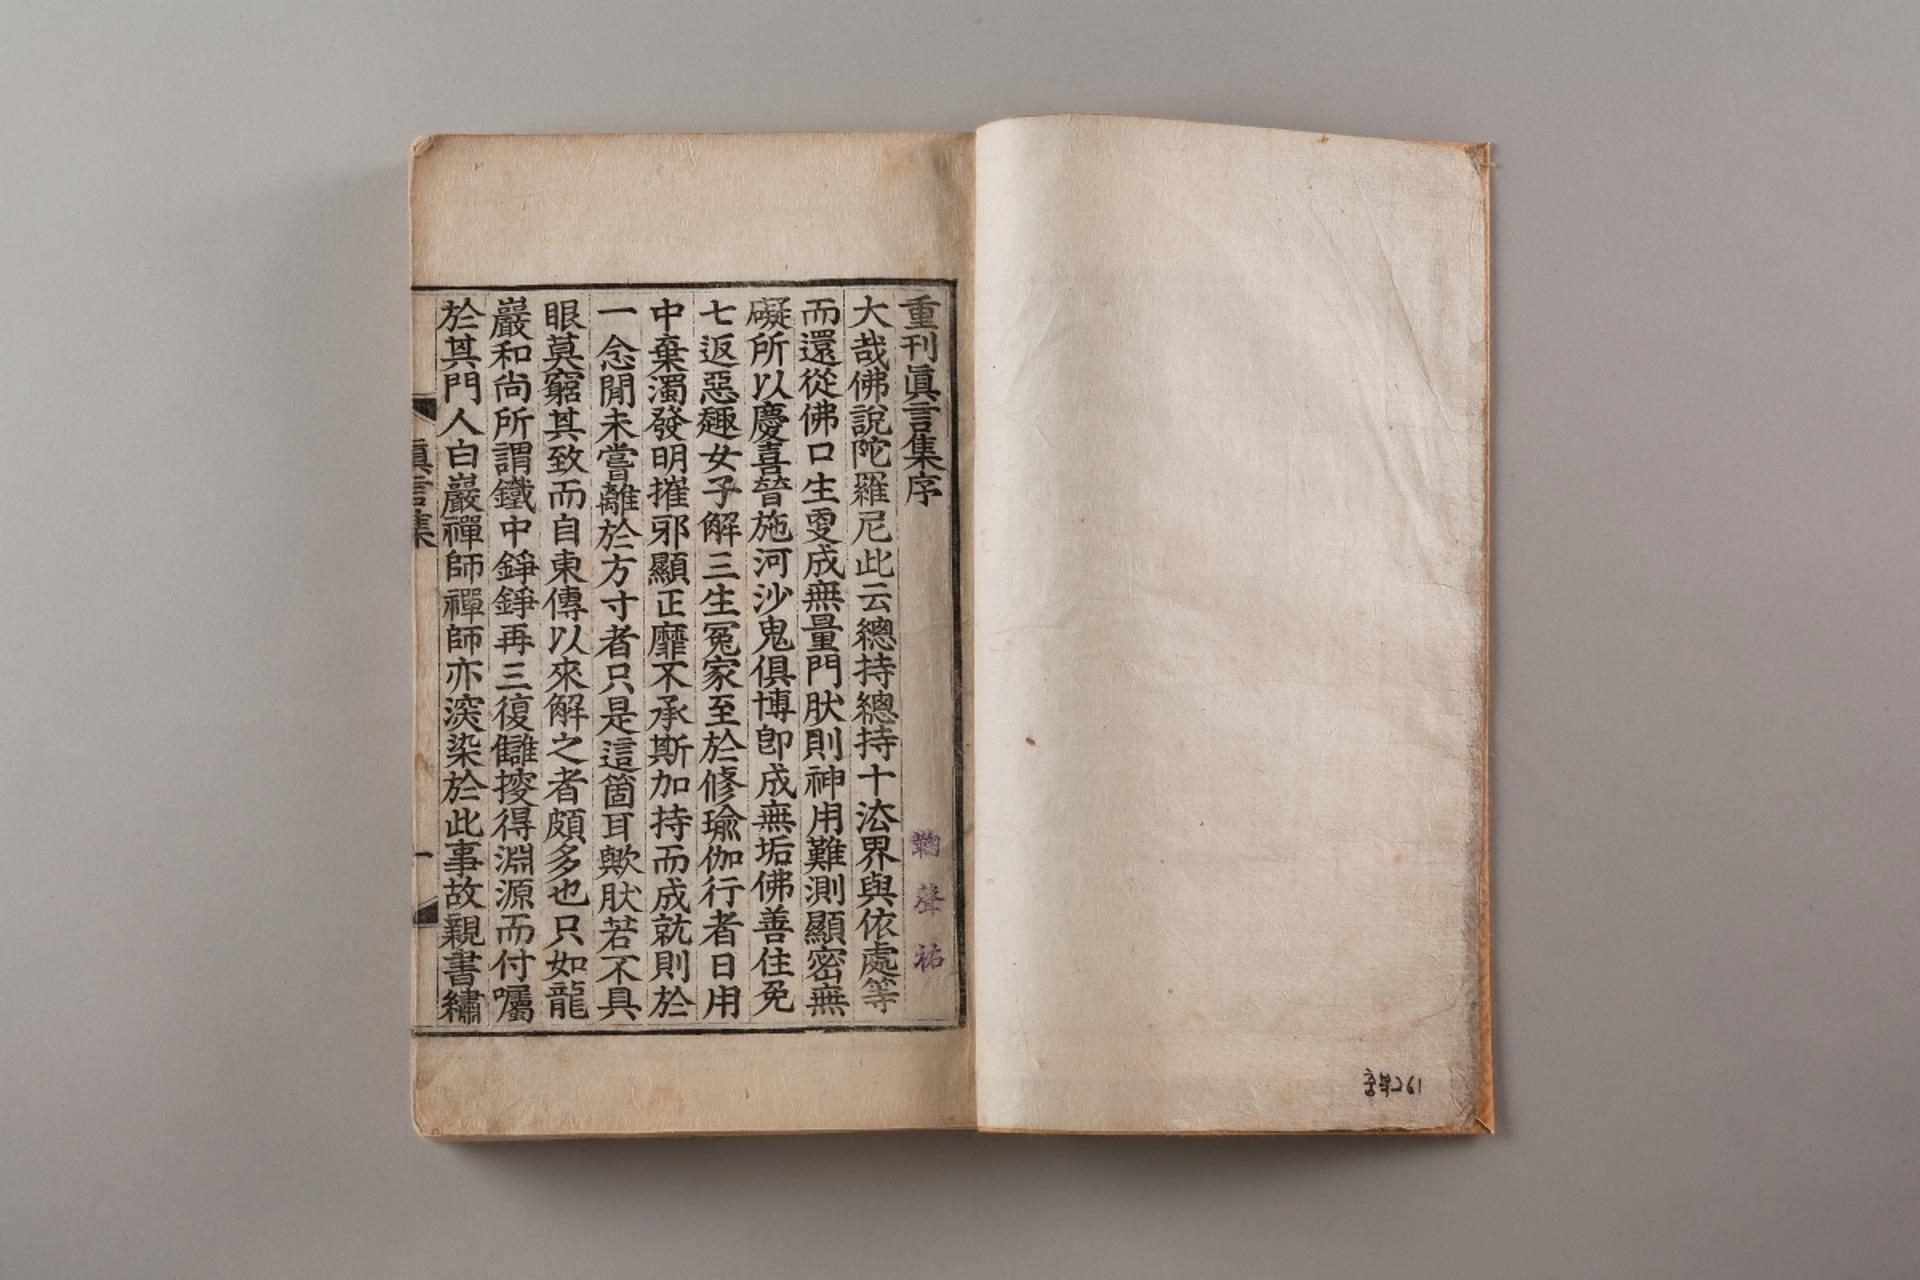 重刊眞言集序
鞠聲祐
大哉佛說陀羅尼此云總持總持十法界與依處等
而還從佛口生更成無量門肰則神用難測顯密無
礙所以慶喜晉施河沙鬼俱博卽成無垢佛善住免
七返惡趣女子解三生冤家至於修瑜伽行者日用
中棄濁發明摧邪顯正靡不承斯加持而成就則於
一念閒未嘗離於方寸者只是這箇耳歟肰若不具
眼莫窮其致而自東傳以來解之者頗多也只如龍
巖和尙所謂鐵中錚錚再三復讎挍得淵源而付囑
於其門人白巖禪師禪師亦深染於此事故親書繡
眞言集
一
중북261